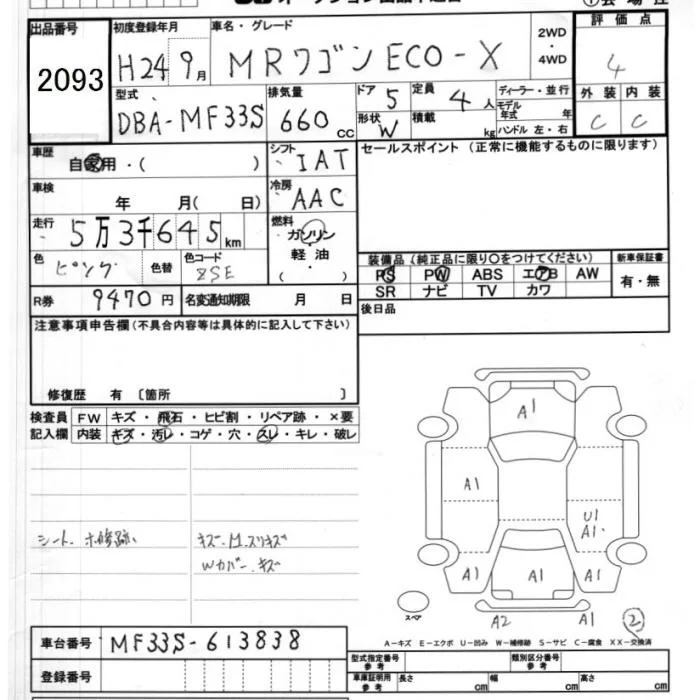 出品番号 2093
初度登録年月 H24 9月
車名・グレード MRワゴン ECO-X
2WD・4WD
評価点 4
型式 DBA-MF33S
排気量 660 cc
ドア 5 定員 4人
形状 W 積載 kg
ディーラー・並行
モデル年式 年
ハンドル 左・右
外装 内装
C C
車歴 自家用・( )
シフト IAT
セールスポイント(正常に機能するものに限ります)
車検 年 月( 日)
冷房 AAC
走行 5万3千645km
燃料 ガソリン・軽油・( )
色 ピンク 色替 色コード ZSE
装備品(純正品に限り○をつけてください) 新車保証書
PS PW ABS エアB AW 有・無
SR ナビ TV カワ
R券 9470円 名変通知期限 月 日
後日品
注意事項申告欄(不具合内容等は具体的に記入して下さい)
修復歴 有 〔箇所 〕
検査員 FW キズ・飛石・ヒビ割・リペア跡・×要
記入欄 内装 キズ・汚レ・コゲ・穴・スレ・キレ・破レ
A1
A1 U1
A1
A1 A1 A1
シート 補修跡 キズ スリキズ
Wカバー キズ
スペア A2 A1 2
A-キズ E-エクボ U-凹み W-補修跡 S-サビ C-腐食 XX-交換済
車台番号 MF33S-613838
型式指定番号 参考 類別区分番号 参考
登録番号
車庫証明用 参考 長さ cm 幅 cm 高さ cm